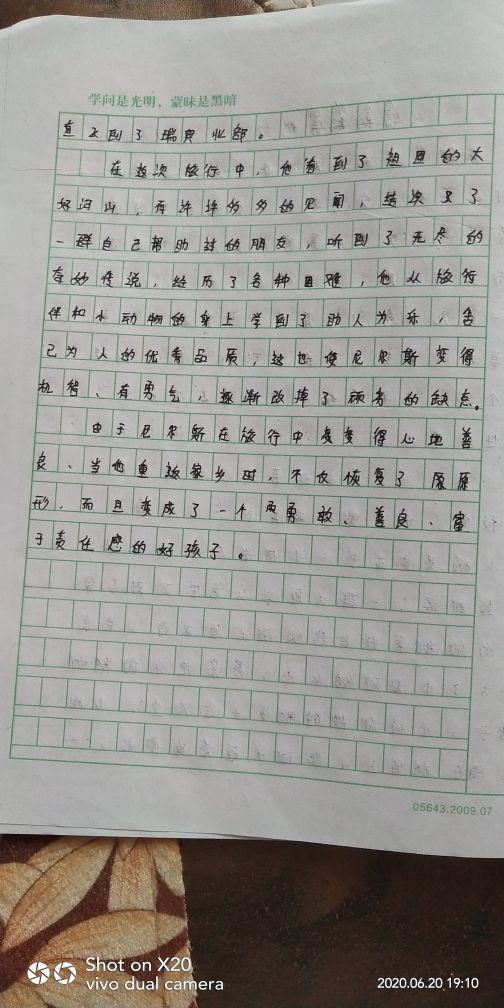 学问是光明，蒙昧是黑暗
直飞到了瑞典北部。
在这次旅行中，他看到了祖国的大
好河山，有许许多多的见闻，结识了
一群自己帮助过的朋友，听到了无尽的
奇妙传说，经历了各种困难，他从旅行
伴和小动物的身上学到了助人为乐，舍
己为人的优秀品质，这也使尼尔斯变得
机智、有勇气，逐渐改掉了顽劣的缺点。
由于尼尔斯在旅行中变得心地善
良、当他重返家乡时，不仅恢复了原
形，而且变成了一个勇敢、善良、富
于责任感的好孩子。
05643.2009.07
Shot on X20
vivo dual camera
2020.06.20 19:10